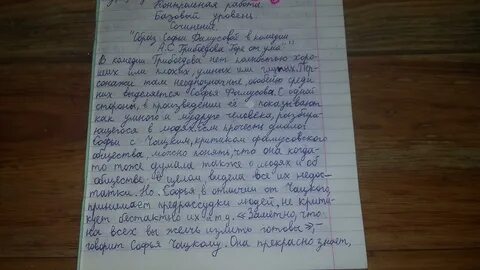 Контрольная работа.
Базовый уровень.
Сочинение.
"Образ Софьи Фамусовой в комедии
А.С. Грибоедова "Горе от ума""
В комедии Грибоедова нет полностью хоро-
ших или плохих, умных или глупых. Пер-
сонажи там неоднозначные, особенно среди
них выделяется Софья Фамусова. С одной
стороны, в произведении её показывают
как умного и мудрого человека, разбира-
ющегося в людях. Если прочесть диалог
Софьи с Чацким, критиком фамусовского
общества, можно понять, что она когда-
то тоже думала также о людях и об
обществе в целом, видела все их недо-
статки. Но Софья в отличии от Чацкого
принимает предрассудки людей, не крити-
кует бестактно их и т.д. «Заметно, что
на всех вы желчь излить готовы»,-
говорит Софья Чацкому. Она прекрасно знает,